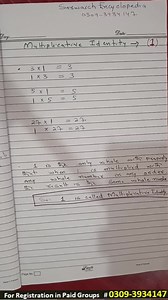 Sandwich Encyclopedia
0309-3934147
Multiplicative Identity → (1)
3 x 1 = 3
1 x 3 = 3
5 x 1 = 5
1 x 5 = 5
27 x 1 = 27
1 x 27 = 27
1 is the only whole number
that when is multiplied with
any whole number in any order
the result is the same whole number
1 is called Multiplicative Identity
For Registration in Paid Groups # 0309-3934147